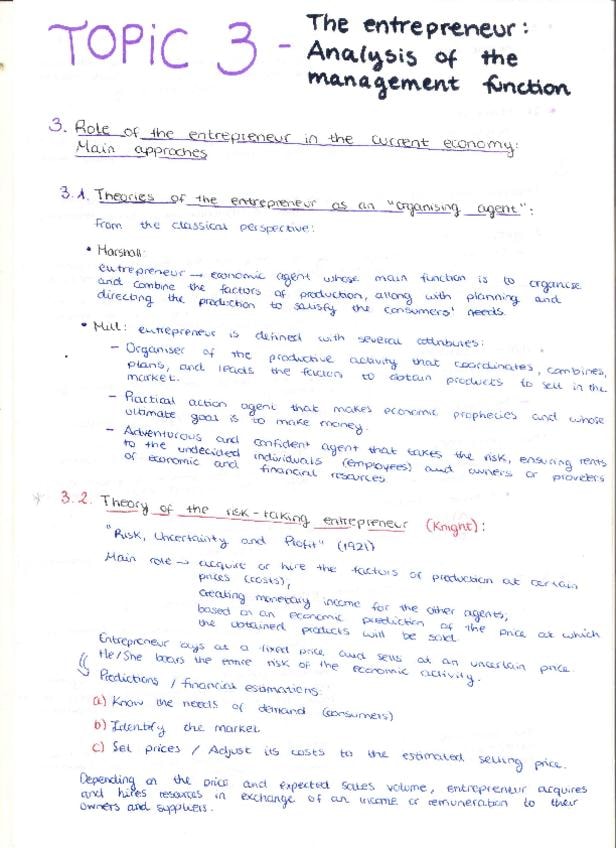 TOPIC 3 - The entrepreneur:
Analysis of the
management function
3. Role of the entrepreneur in the current economy:
Main approches
3.1. Theories of the entrepreneur as an "organising agent":
From the classical perspective:
• Marshall:
entrepreneur → economic agent whose main function is to organise
and combine the factors of production, allong with planning and
directing the production to satisfy the consumers' needs.
• Mill: entrepreneur is defined with several attributes:
- Organiser of the productive activity that coordinates, combines,
plans, and leads the factors to obtain products to sell in the
market.
- Practical action agent that makes economic prophecies and whose
ultimate goal is to make money.
- Adventurous and confident agent that takes the risk, ensuring rents
to the undecided individuals (employees) and owners or providers
of economic and financial resources.
* 3.2. Theory of the risk-taking entrepreneur (Knight):
"Risk, Uncertainty and Profit" (1921)
Main role → acquire or hire the factors of production at certain
prices (costs),
creating monetary income for the other agents,
based on an economic prediction of the price at which
the obtained products will be sold.
Entrepreneur buys at a fixed price and sells at an uncertain price.
He/She bears the entire risk of the economic activity.
Predictions / financial estimations:
a) Know the needs of demand (consumers)
b) Identify the market
c) Set prices / Adjust its costs to the estimated selling price.
Depending on the price and expected sales volume, entrepreneur acquires
and hires resources in exchange of an income or remuneration to their
owners and suppliers.